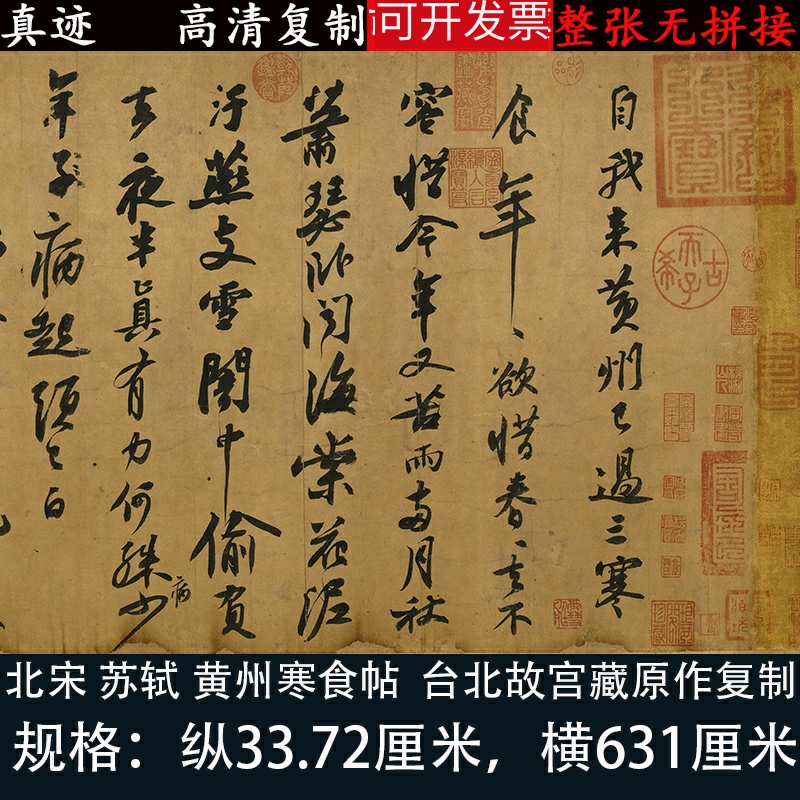 真迹 高清复制 可开发票 整张无拼接
自我来黄州已過三寒
食年〻欲惜春〻去不
容惜今年又苦雨兩月秋
蕭瑟卧聞海棠花泥
汙燕支雪闇中偷負
去夜半真有力何殊少
病
年子病起須已白
古希天子
北宋 苏轼 黄州寒食帖 台北故宫藏原作复制
规格：纵33.72厘米，横631厘米